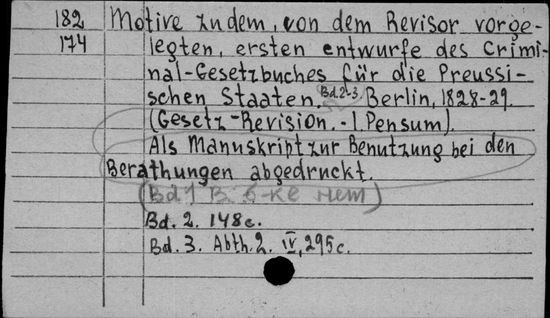 182 Motive zu dem, von dem Revisor vorge-
174 legten, ersten entwurfe des Crimi-
nal-Gesetzbuches für die Preussi-
schen Staaten. Bd.2-3. Berlin, 1828-29.
(Gesetz-Revision. - I Pensum).
Als Manuskript zur Benutzung bei den
Berathungen abgedruckt.
(Bd 1 в б-ке нет)
Bd. 2. 148 с.
Bd. 3. Abth. 2. IV, 295 с.